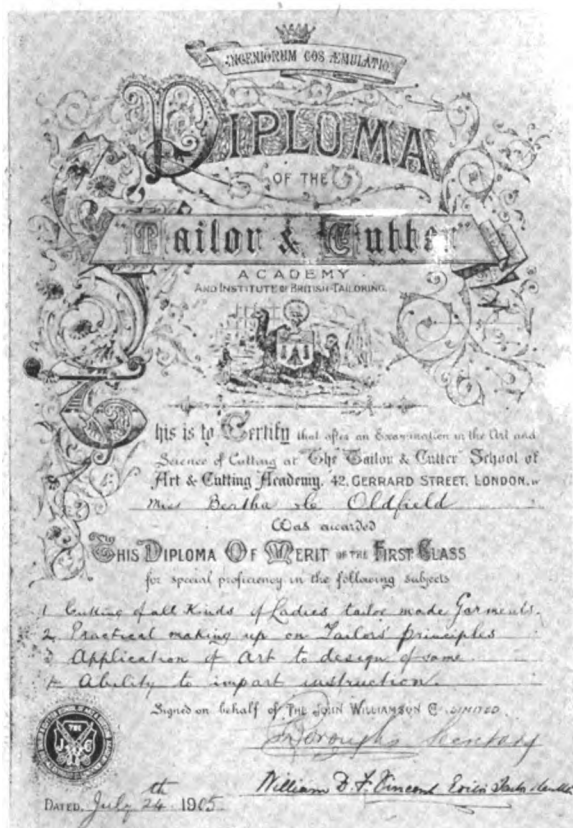 INGENIORUM COS ÆMULATIO
DIPLOMA
OF THE
"Tailor & Cutter"
ACADEMY
AND INSTITUTE OF BRITISH TAILORING.
This is to Certify that after an Examination in the Art and
Science of Cutting at "The Tailor & Cutter" School of
Art & Cutting Academy, 42, GERRARD STREET, LONDON. W
Miss Bertha Oldfield
Was awarded
THIS DIPLOMA OF MERIT OF THE FIRST CLASS
for special proficiency in the following subjects
1 Cutting of all Kinds of Ladies tailor made Garments.
2 Practical making up on Tailors' principles
3 Application of Art to design of same
4 Ability to impart instruction.
Signed on behalf of THE JOHN WILLIAMSON Co LIMITED
Boroughs Secretary
William D. F. Vincent
DATED, July 24th 1905